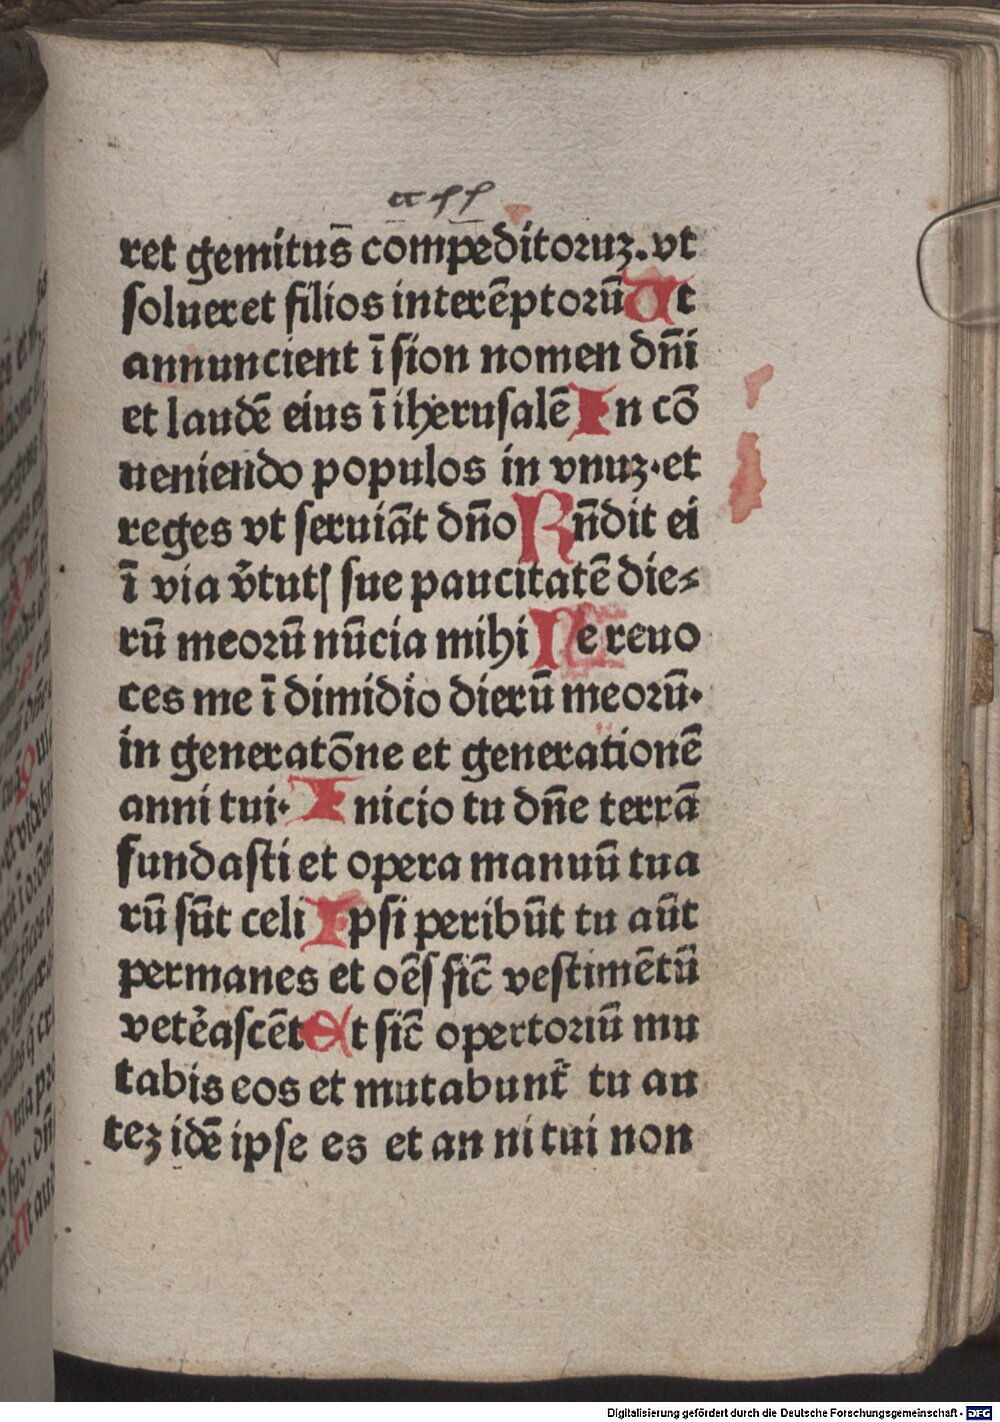 ret gemitus̄ cōmpeditoruꝫ. vt
solueret filios interēptorū Ut
annuncient ī sion nomen dn̄i
et laudē eius ī iherusalē In cō
ueniendo populos in vnuꝫ·et
reges vt seruiāt dn̄o Rn̄dit ei
ī via v̄tutſ sue paucitatē die⸗
rū meorū nūcia mihi Ne reuo
ces me ī dimidio dierū meorū·
in generatōne et generationē
anni tui· Inicio tu dn̄e terrā
fundasti et opera manuū tua
rū sūt celi Ipsi peribūt tu aūt
permanes et oēs sic̄ vestimētū
vetẽascēt Et sic̄ opertoriū mu
tabis eos et mutabunt̄ tu au
teꝫ idē ipse es et an ni tui non
Digitalisierung gefördert durch die Deutsche Forschungsgemeinschaft - DFG